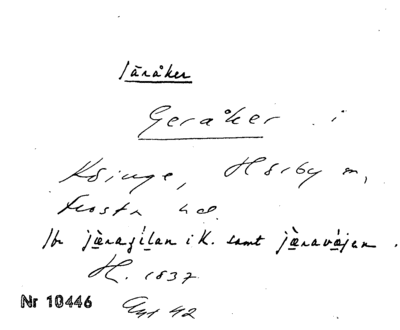 järåker
Geråker i
Köinge, Hörby m,
Frosta hd.
/br järagilan i K. samt järavåjen.
H. 1837
Nr 10446 42